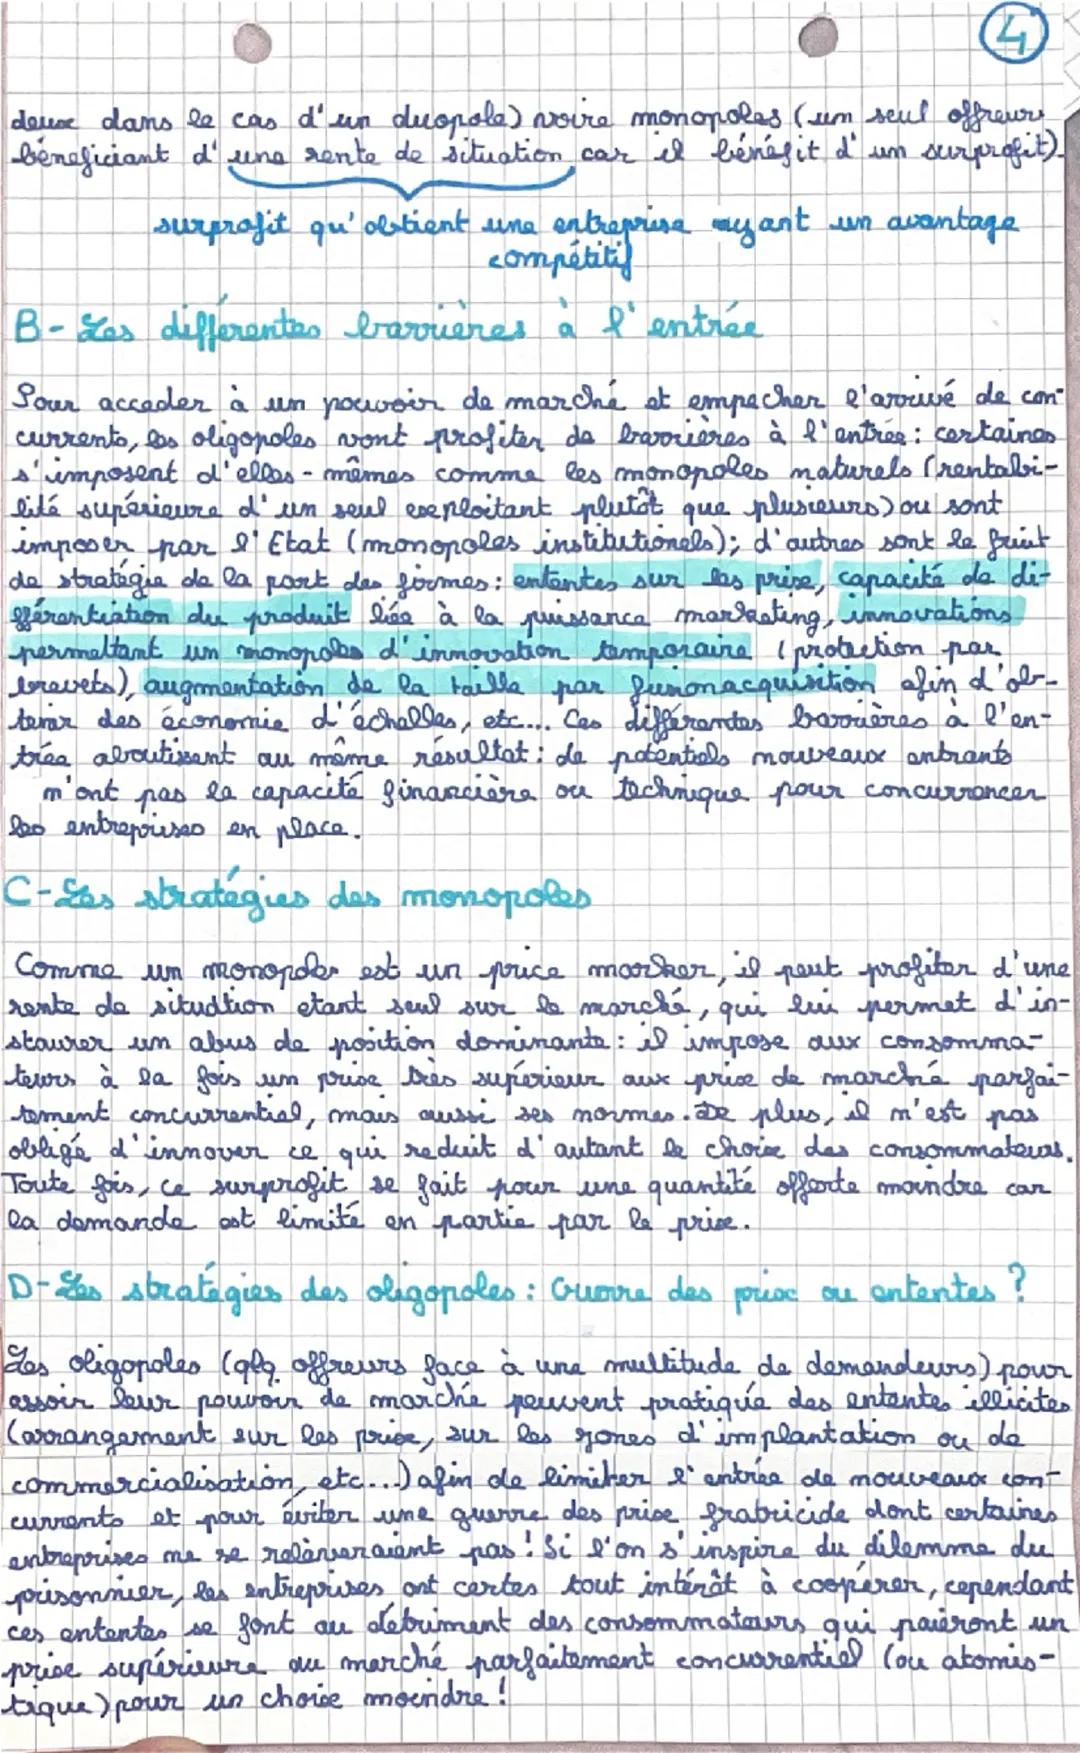 4
deux dans le cas d'un duopole) voire monopoles (um seul offreur
bénéficiant d'une rente de situation car il bénéfit d'un surprofit).
surprofit qu'obtient une entreprise ayant un avantage
compétitif
B - Les différentes barrières à l'entrée
Pour acceder à un pouvoir de marché et empecher l'arrivé de con-
currents, les oligopoles vont profiter de barrières à l'entrée : certaines
s'imposent d'elles - mêmes comme les monopoles naturels (rentabi-
lité supérieure d'un seul exploitant plutôt que plusieurs) ou sont
imposer par l'Etat (monopoles institutionels); d'autres sont le fruit
de stratégie de la part des firmes : ententes sur les prix, capacité de di-
fférentiation du produit liée à la puissance marketing, innovations
permettant un monopoles d'innovation temporaire (protection par
brevets), augmentation de la taille par fusionacquisition afin d'ob-
tenir des économie d'échelles, etc... Ces différentes barrières à l'en-
trée aboutissent au même résultat : de potentiels nouveaux entrants
n'ont pas la capacité financière ou technique pour concurrencer
les entreprises en place.
C - Les stratégies des monopoles
Comme un monopoles est un price marker, il peut profiter d'une
rente de situation etant seul sur le marché, qui lui permet d'in-
staurer un abus de position dominante : il impose aux consomma-
teurs à la fois un prix très supérieur aux prix de marché parfai-
tement concurrentiel, mais aussi ses normes. De plus, il n'est pas
obligé d'innover ce qui reduit d'autant le choix des consommateurs.
Toute fois, ce surprofit se fait pour une quantité offerte moindre car
la demande est limité en partie par le prix.
D - Les stratégies des oligopoles : Guerre des prix ou ententes ?
Les oligopoles (qlq offreurs face à une multitude de demandeurs) pour
assoir leur pouvoir de marché peuvent pratiquée des ententes illicites
(arrangement sur les prix, sur les zones d'implantation ou de
commercialisation, etc...) afin de limiter l'entrée de nouveaux con-
currents et pour éviter une guerre des prix fratricide dont certaines
entreprises ne se relèveraient pas ! Si l'on s'inspire du dilemme du
prisonnier, les entreprises ont certes tout intérêt à coopérer, cependant
ces ententes se font au détriment des consommateurs qui paieront un
prix supérieure au marché parfaitement concurrentiel (ou atomis-
tique) pour un choix moindre !